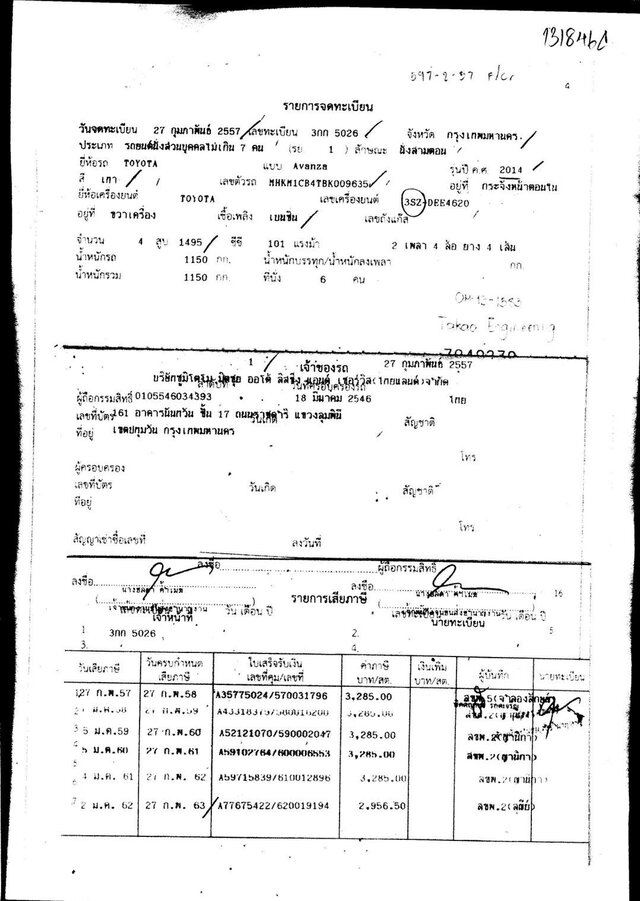 131846
รายการจดทะเบียน
วันจดทะเบียน 27 กุมภาพันธ์ 2557 เลขทะเบียน 3กก 5026 จังหวัด กรุงเทพมหานคร
ประเภท รถยนต์นั่งส่วนบุคคลไม่เกิน 7 คน (รย 1 ) ลักษณะ นั่งสามตอน
ยี่ห้อรถ TOYOTA แบบ Avanza รุ่นปี ค.ศ 2014
สี เทา เลขตัวรถ MHKM1CB4TBK009635 อยู่ที่ กระจังหน้าตอนใน
ยี่ห้อเครื่องยนต์ TOYOTA เลขเครื่องยนต์ 3SZ-DEE4620
อยู่ที่ ขวาเครื่อง เชื้อเพลิง เบนซิน เลขถังแก๊ส
จำนวน 4 สูบ 1495 ซีซี 101 แรงม้า 2 เพลา 4 ล้อ ยาง 4 เส้น
น้ำหนักรถ 1150 กก. น้ำหนักบรรทุก/น้ำหนักลงเพลา กก.
น้ำหนักรวม 1150 กก. ที่นั่ง 6 คน
Takao Engineering
1 เจ้าของรถ 27 กุมภาพันธ์ 2557
บริษัทซูมิโตโม มิตซุย ออโต้ ลิสซิ่ง แอนด์ เซอร์วิส(ไทยแลนด์)จำกัด
ผู้ถือกรรมสิทธิ์ 0105546034393 18 มีนาคม 2546 ไทย
เลขที่บัตร 161 อาคารนันทวัน ชั้น 17 ถนนราชดำริ แขวงลุมพินี วันเกิด สัญชาติ
ที่อยู่ เขตปทุมวัน กรุงเทพมหานคร
โทร
ผู้ครอบครอง
เลขที่บัตร วันเกิด สัญชาติ
ที่อยู่
โทร
สัญญาเช่าซื้อเลขที่ ลงวันที่
ลงชื่อ ผู้ถือกรรมสิทธิ์
ลงชื่อ ลงชื่อ 16
รายการเสียภาษี
เจ้าหน้าที่ วัน เดือน ปี นายทะเบียน วัน เดือน ปี
1 3กก 5026 2. 5
3. 4.
วันเสียภาษี วันครบกำหนดเสียภาษี ใบเสร็จรับเงิน เลขที่คุม/เลขที่ ค่าภาษี บาท/สต. เงินเพิ่ม บาท/สต. ผู้บันทึก นายทะเบียน
27 ก.พ.57 27 ก.พ.58 A35775024/570031796 3,285.00
ม.ค.58 27 ก.พ.59 3,285.00
5 ม.ค.59 27 ก.พ.60 A52121070/590002047 3,285.00
5 ม.ค.60 27 ก.พ.61 A59102764/600006553 3,285.00 ลขพ.2
4 ม.ค. 61 27 ก.พ. 62 A59715839/610012896 3,285.00 ลขพ.2
2 ม.ค. 62 27 ก.พ. 63 A77675422/620019194 2,956.50 ลขพ.2